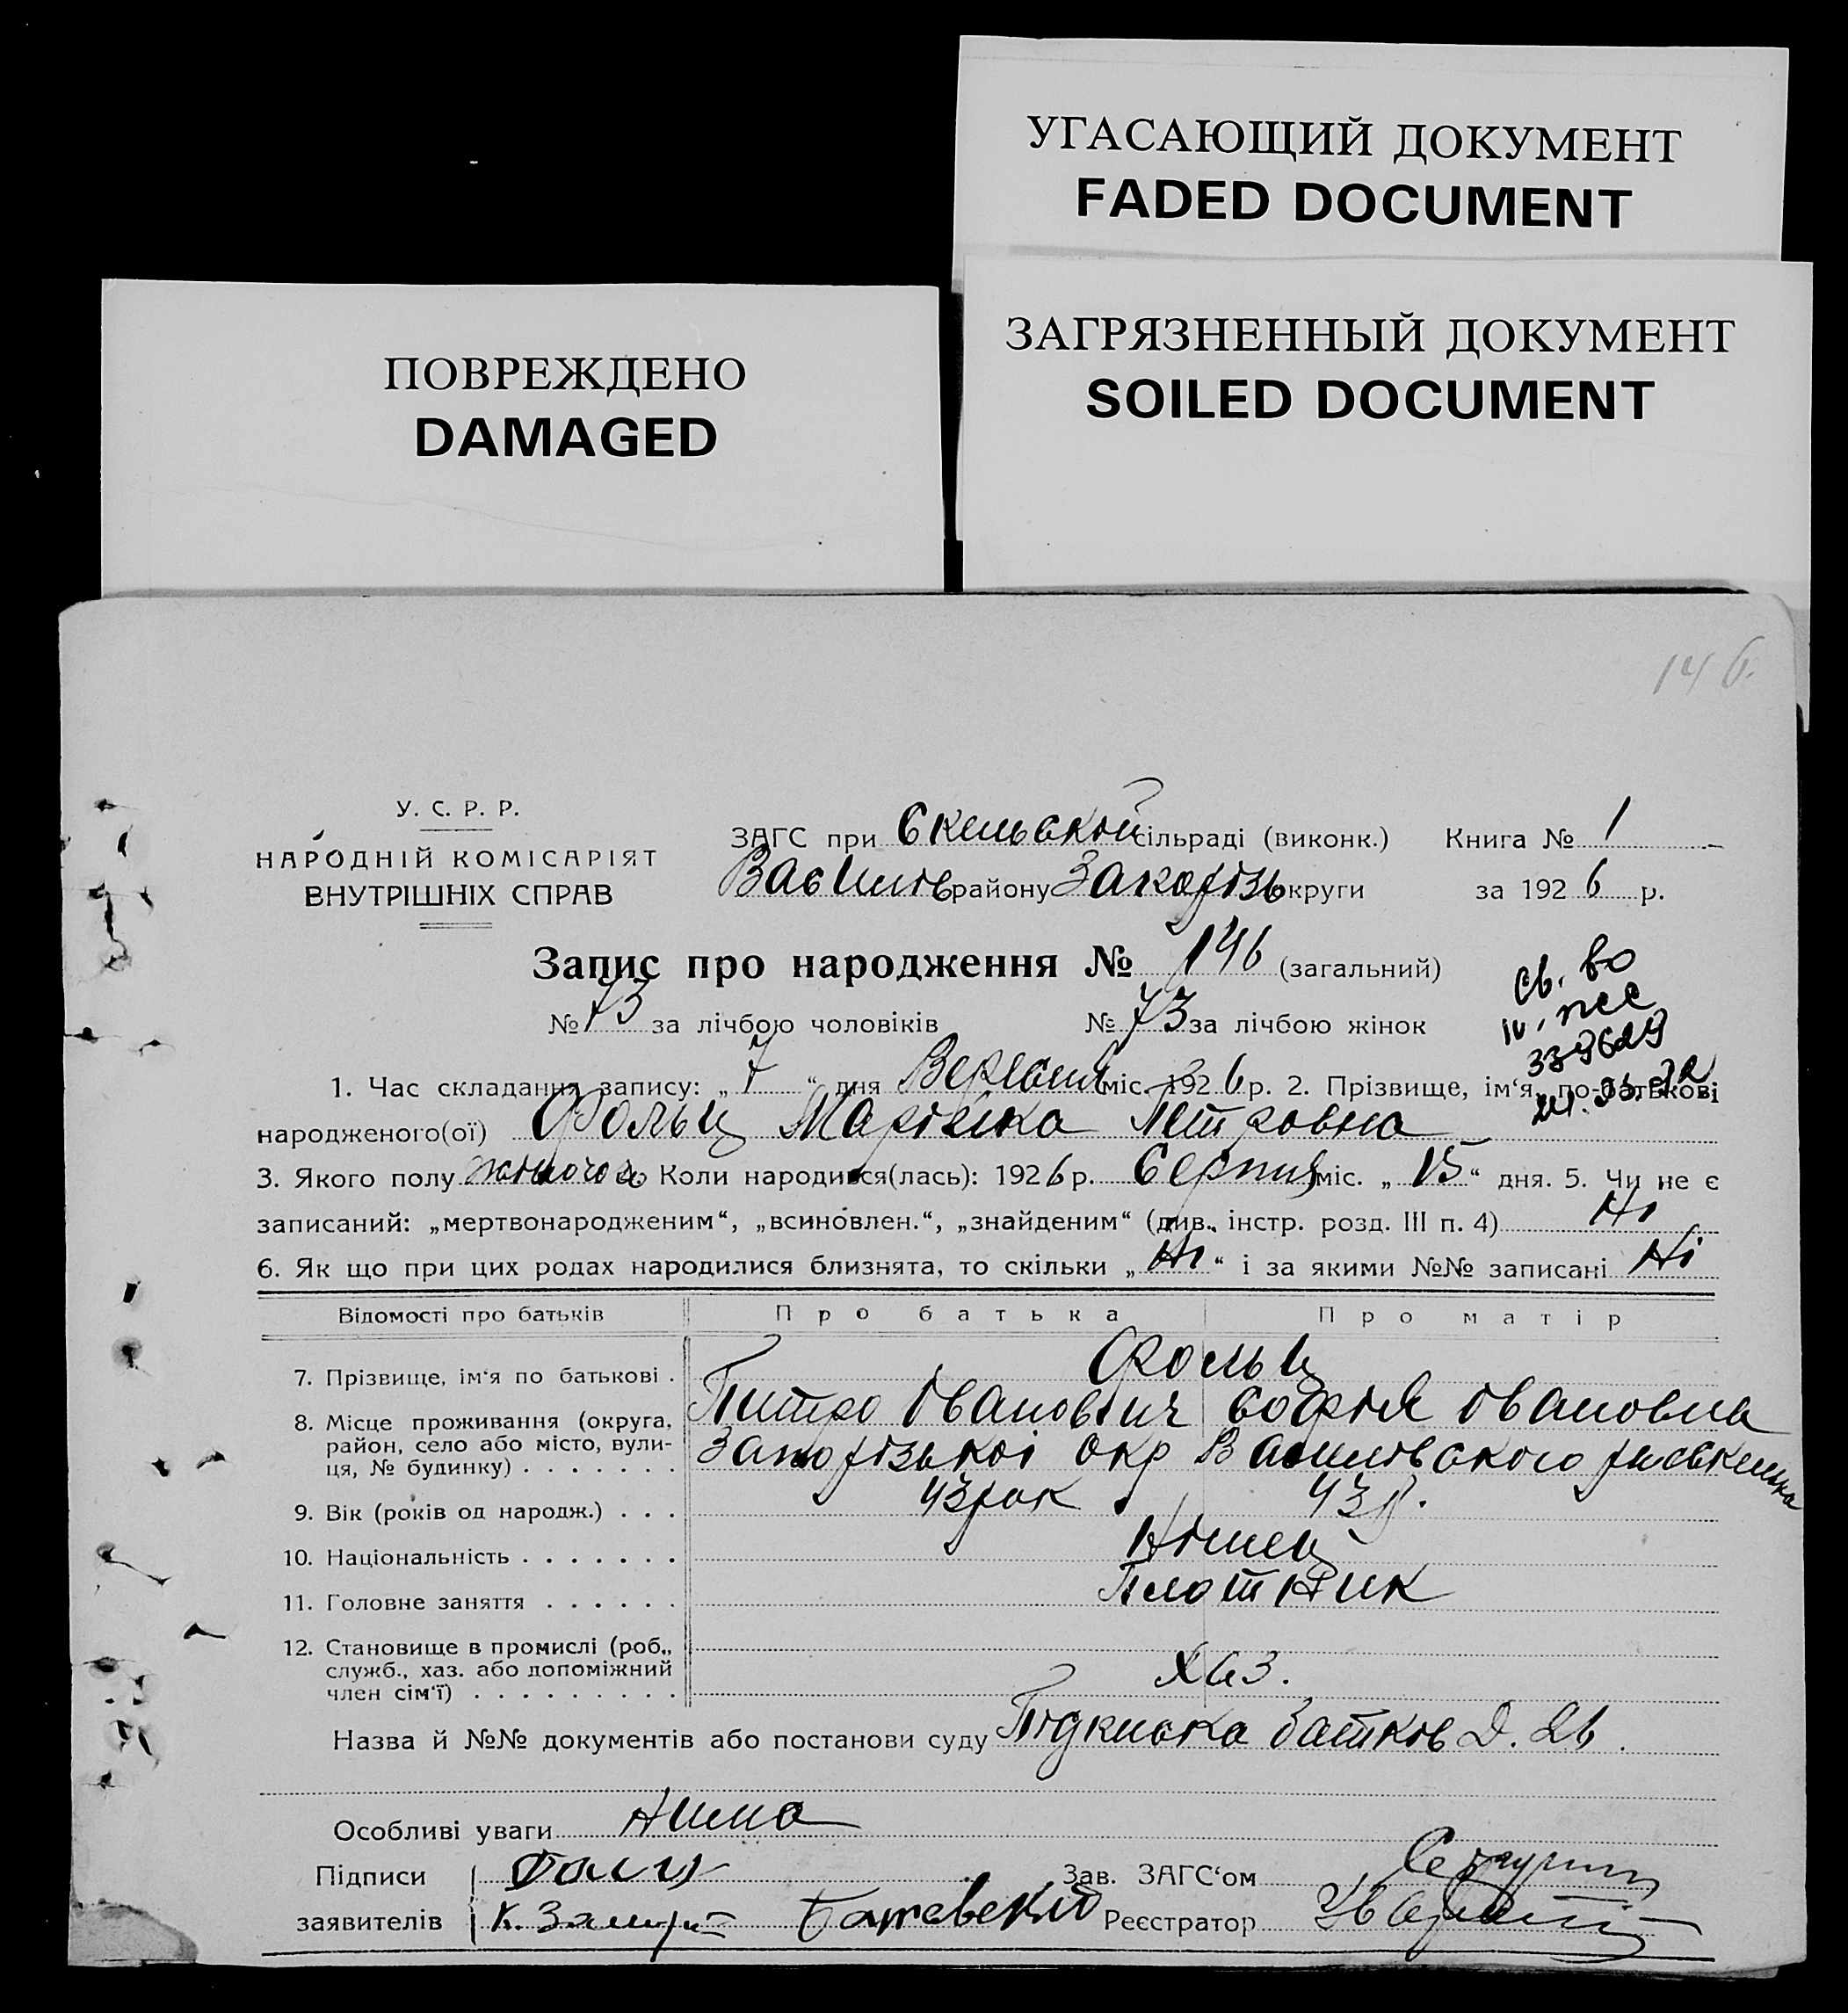 УГАСАЮЩИЙ ДОКУМЕНТ
FADED DOCUMENT
ЗАГРЯЗНЕННЫЙ ДОКУМЕНТ
SOILED DOCUMENT
ПОВРЕЖДЕНО
DAMAGED
146.
У. С. Р. Р.
НАРОДНІЙ КОМІСАРІЯТ
ВНУТРІШНІХ СПРАВ
ЗАГС при Скельській сільраді (виконк.) Книга № 1
Василів району Запорізь округи за 1926 р.
Запис про народження № 146 (загальний)
№ 73 за лічбою чоловіків № 73 за лічбою жінок
св. во
339629
1. Час складання запису: „ 7 “ дня Вересня міс. 1926 р. 2. Прізвище, ім‘я, по-батькові
народженого(ої) Фольц Марійка Петровна
3. Якого полу жіночог Коли народився(лась): 1926 р. Серпня міс. „ 15 “ дня. 5. Чи не є
записаний: „мертвонародженим“, „всиновлен.“, „знайденим“ (див. інстр. розд. III п. 4) Ні
6. Як що при цих родах народилися близнята, то скільки „ Ні “ і за якими №№ записані Ні
Відомості про батьків Про батька Про матір
7. Прізвище, ім‘я по батькові . Фольц
Питро Іванович Софія Івановна
8. Місце проживання (округа, район, село або місто, вулиця, № будинку) . . . . . . . Запорізької окр Василівського
9. Вік (років од народж.) . . . 43 рок 43 р.
10. Національність . . . . . . . Німец
11. Головне заняття . . . . . . Плотник
12. Становище в промислі (роб., служб., хаз. або допоміжний член сім‘ї) . . . . . . . . . Хаз.
Назва й №№ документів або постанови суду Підписка батьків
Особливі уваги Нима
Підписи
заявителів
Зав. ЗАГС‘ом
Реєстратор